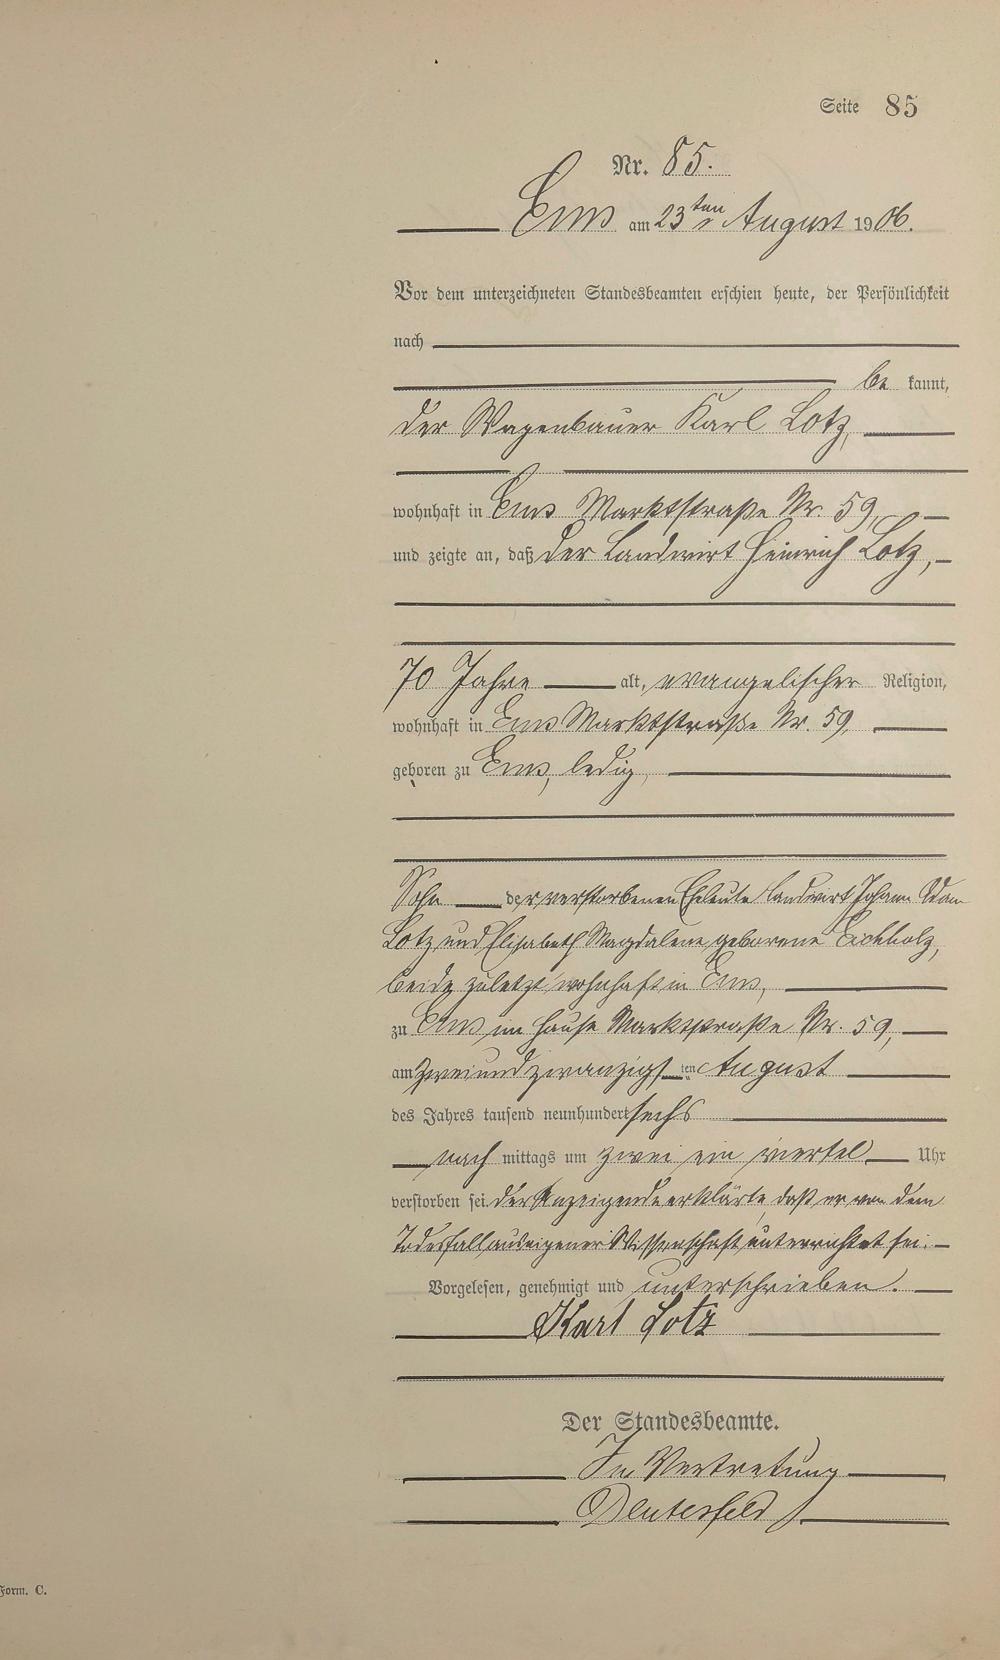 Seite 85
Nr. 85.
Ems am 23ten August 1906.
Vor dem unterzeichneten Standesbeamten erschien heute, der Persönlichkeit
nach
be kannt,
der Wagenbauer Karl Lotz,
wohnhaft in Ems Marktstraße Nr. 59,
und zeigte an, daß der Landwirt Heinrich Lotz,
70 Jahre alt, evangelischer Religion,
wohnhaft in Ems Marktstraße Nr. 59,
geboren zu Ems, ledig,
Sohn der verstorbenen Eheleute Landwirt Johann Adam
Lotz und Elisabeth Magdalene geborene Eichholz,
beide zuletzt wohnhaft in Ems,
zu Ems im Hause Marktstraße Nr. 59,
am zweiundzwanzigsten August
des Jahres tausend neunhundert sechs
nach mittags um zwei ein viertel Uhr
verstorben sei. Der Anzeigende erklärte, daß er von dem
Todesfall aus eigener Wissenschaft unterrichtet sei.
Vorgelesen, genehmigt und unterschrieben.
Karl Lotz
Der Standesbeamte.
In Vertretung
Form. C.